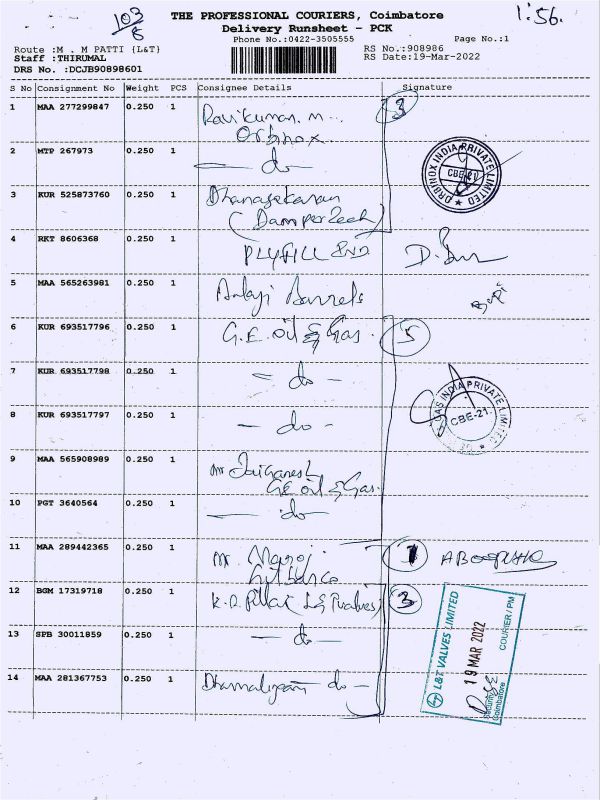 103
8
1:56.
THE PROFESSIONAL COURIERS, Coimbatore
Delivery Runsheet - PCK
Phone No.:0422-3505555
Page No.:1
Route :M . M PATTI {L&T}
RS No.:908986
Staff :THIRUMAL
RS Date:19-Mar-2022
DRS No. :DCJB90898601
S No Consignment No Weight PCS Consignee Details Signature
1 MAA 277299847 0.250 1 Ravikumar. m... 3
Orbinox
2 MTP 267973 0.250 1 — do —
ORBINOX INDIA PRIVATE LIMITED
CBE-21
3 KUR 525873760 0.250 1 Dhanasekaran
(Dampertech)
4 RKT 8606368 0.250 1 PLYFILL IND
5 MAA 565263981 0.250 1 Balaji Barrels
6 KUR 693517796 0.250 1 G.E. oil & Gas. 5
7 KUR 693517798 0.250 1 — do —
8 KUR 693517797 0.250 1 — do —
GAS INDIA PRIVATE LIMITED
CBE-21.
9 MAA 565908989 0.250 1 mr Jaiganesh
GE oil & Gas.
10 PGT 3640564 0.250 1 — do —
11 MAA 289442365 0.250 1 mr. Manoj 1
12 BGM 17319718 0.250 1 K.D. Pillai L&T valves 3
13 SPB 30011859 0.250 1 — do —
14 MAA 281367753 0.250 1 Dharmaligam — do —
L&T VALVES LIMITED
19 MAR 2022
COURIER / PM
Security
Coimbatore